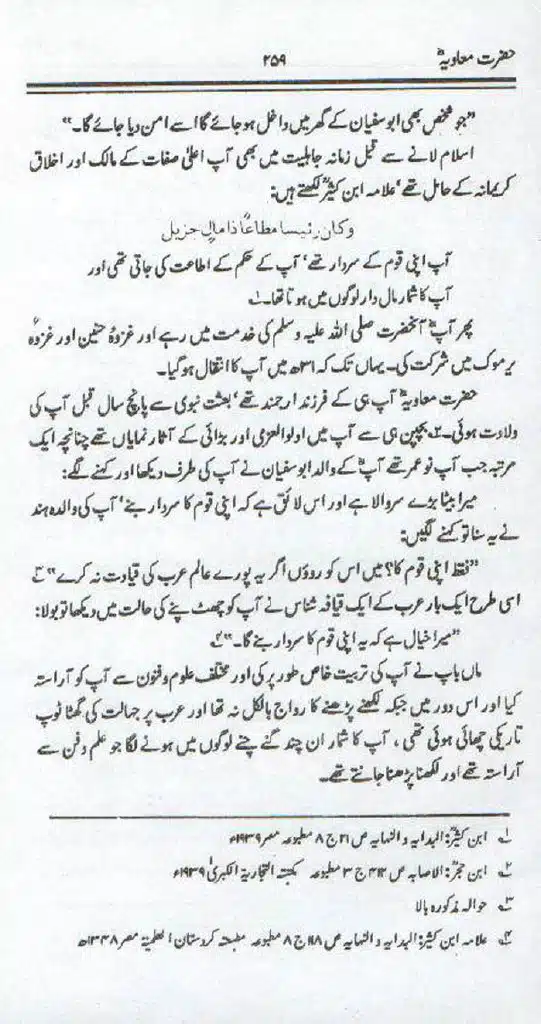 حضرت معاویہؓ
۲۵۹
"جو شخص بھی ابوسفیان کے گھر میں داخل ہو جائے گا اسے امن دیا جائے گا۔"
اسلام لانے سے قبل زمانہ جاہلیت میں بھی آپ اعلیٰ صفات کے مالک اور اخلاق
کریمانہ کے حامل تھے' علامہ ابن کثیرؒ لکھتے ہیں:
وکان رئیسا مطاعًا ذا مال جزیل
آپ اپنی قوم کے سردار تھے' آپ کے حکم کے اطاعت کی جاتی تھی اور
آپ کا شمار مال دار لوگوں میں ہوتا تھا۔۱
پھر آپؓ آنحضرت صلی اللہ علیہ وسلم کی خدمت میں رہے اور غزوۂ حنین اور غزوۂ
یرموک میں شرکت کی۔ یہاں تک کہ ۳۱ھ میں آپ کا انتقال ہو گیا۔
حضرت معاویہؓ آپ ہی کے فرزند ارجمند تھے' بعثت نبوی سے پانچ سال قبل آپ کی
ولادت ہوئی۔۲ بچپن ہی سے آپ میں اولوالعزمی اور بڑائی کے آثار نمایاں تھے چنانچہ ایک
مرتبہ جب آپ نو عمر تھے آپؓ کے والد ابوسفیان نے آپ کی طرف دیکھا اور کہنے لگے:
میرا بیٹا بڑے سر والا ہے اور اس لائق ہے کہ اپنی قوم کا سردار بنے' آپ کی والدہ ہند
نے یہ سنا تو کہنے لگیں:
"فقط اپنی قوم کا؟ میں اس کو روؤں اگر یہ پورے عالم عرب کی قیادت نہ کرے" ۳
اسی طرح ایک بار عرب کے ایک قیافہ شناس نے آپ کو چھٹ پنے کی حالت میں دیکھا تو بولا:
"میرا خیال ہے کہ یہ اپنی قوم کا سردار بنے گا۔" ۴
ماں باپ نے آپ کی تربیت خاص طور پر کی اور مختلف علوم و فنون سے آپ کو آراستہ
کیا اور اس دور میں جبکہ لکھنے پڑھنے کا رواج بالکل نہ تھا اور عرب پر جہالت کی گھٹا ٹوپ
تاریکی چھائی ہوئی تھی ، آپ کا شمار ان چند گنے چنے لوگوں میں ہونے لگا جو علم و فن سے
آراستہ تھے اور لکھنا پڑھنا جانتے تھے۔
۱ ابن کثیرؒ: البدایہ و النہایہ ص ۲۱ ج ۸ مطبوعہ مصر ۱۹۳۹ء
۲ ابن حجرؒ: الاصابہ ص ۴۱۲ ج ۳ مطبوعہ مکتبۃ التجاریۃ الکبریٰ ۱۹۳۹ء
۳ حوالہ مذکورہ بالا
۴ علامہ ابن کثیرؒ: البدایہ و النہایہ ص ۱۱۸ ج ۸ مطبوعہ مطبعتہ کردستان العلمیۃ مصر ۱۳۴۸ھ